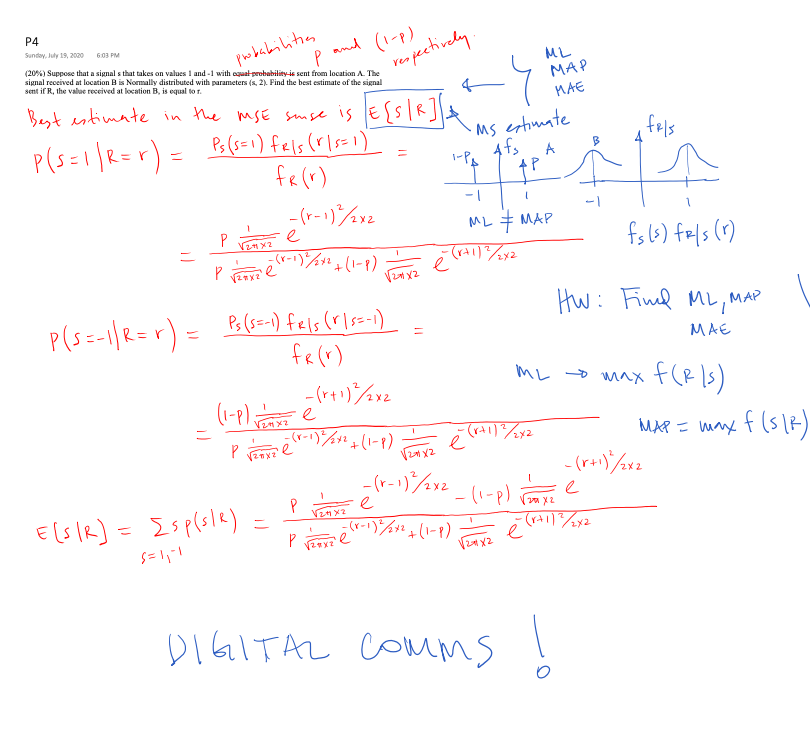 P4
Sunday, July 19, 2020 6:03 PM
probabilities p and (1-p) respectively.
(20%) Suppose that a signal s that takes on values 1 and -1 with equal probability is sent from location A. The
signal received at location B is Normally distributed with parameters (s, 2). Find the best estimate of the signal
sent if R, the value received at location B, is equal to r.
ML
MAP
MAE
Best estimate in the MSE sense is E[S|R]
MS estimate
P(S=1|R=r) = Ps(s=1) fR|s(r|s=1) / fR(r) =
1-p fs p A
-1 1
B fR|s
-1 1
ML ≠ MAP
fs(s) fR|s(r)
= p 1/√2π×2 e^-(r-1)²/2×2 / p 1/√2π×2 e^-(r-1)²/2×2 + (1-p) 1/√2π×2 e^-(r+1)²/2×2
HW: Find ML, MAP
MAE
P(S=-1|R=r) = Ps(s=-1) fR|s(r|s=-1) / fR(r) =
ML → max f(R|s)
= (1-p) 1/√2π×2 e^-(r+1)²/2×2 / p 1/√2π×2 e^-(r-1)²/2×2 + (1-p) 1/√2π×2 e^-(r+1)²/2×2
MAP = max f(s|R)
E[S|R] = Σ s p(s|R) = p 1/√2π×2 e^-(r-1)²/2×2 - (1-p) 1/√2π×2 e^-(r+1)²/2×2 / p 1/√2π×2 e^-(r-1)²/2×2 + (1-p) 1/√2π×2 e^-(r+1)²/2×2
s=1,-1
DIGITAL COMMS !